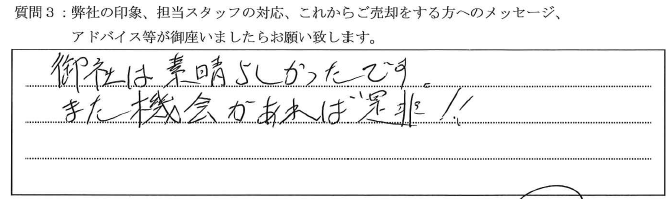 質問３：弊社の印象、担当スタッフの対応、これからご売却をする方へのメッセージ、
アドバイス等が御座いましたらお願い致します。
御社は素晴らしかったです。
また機会があれば是非!!